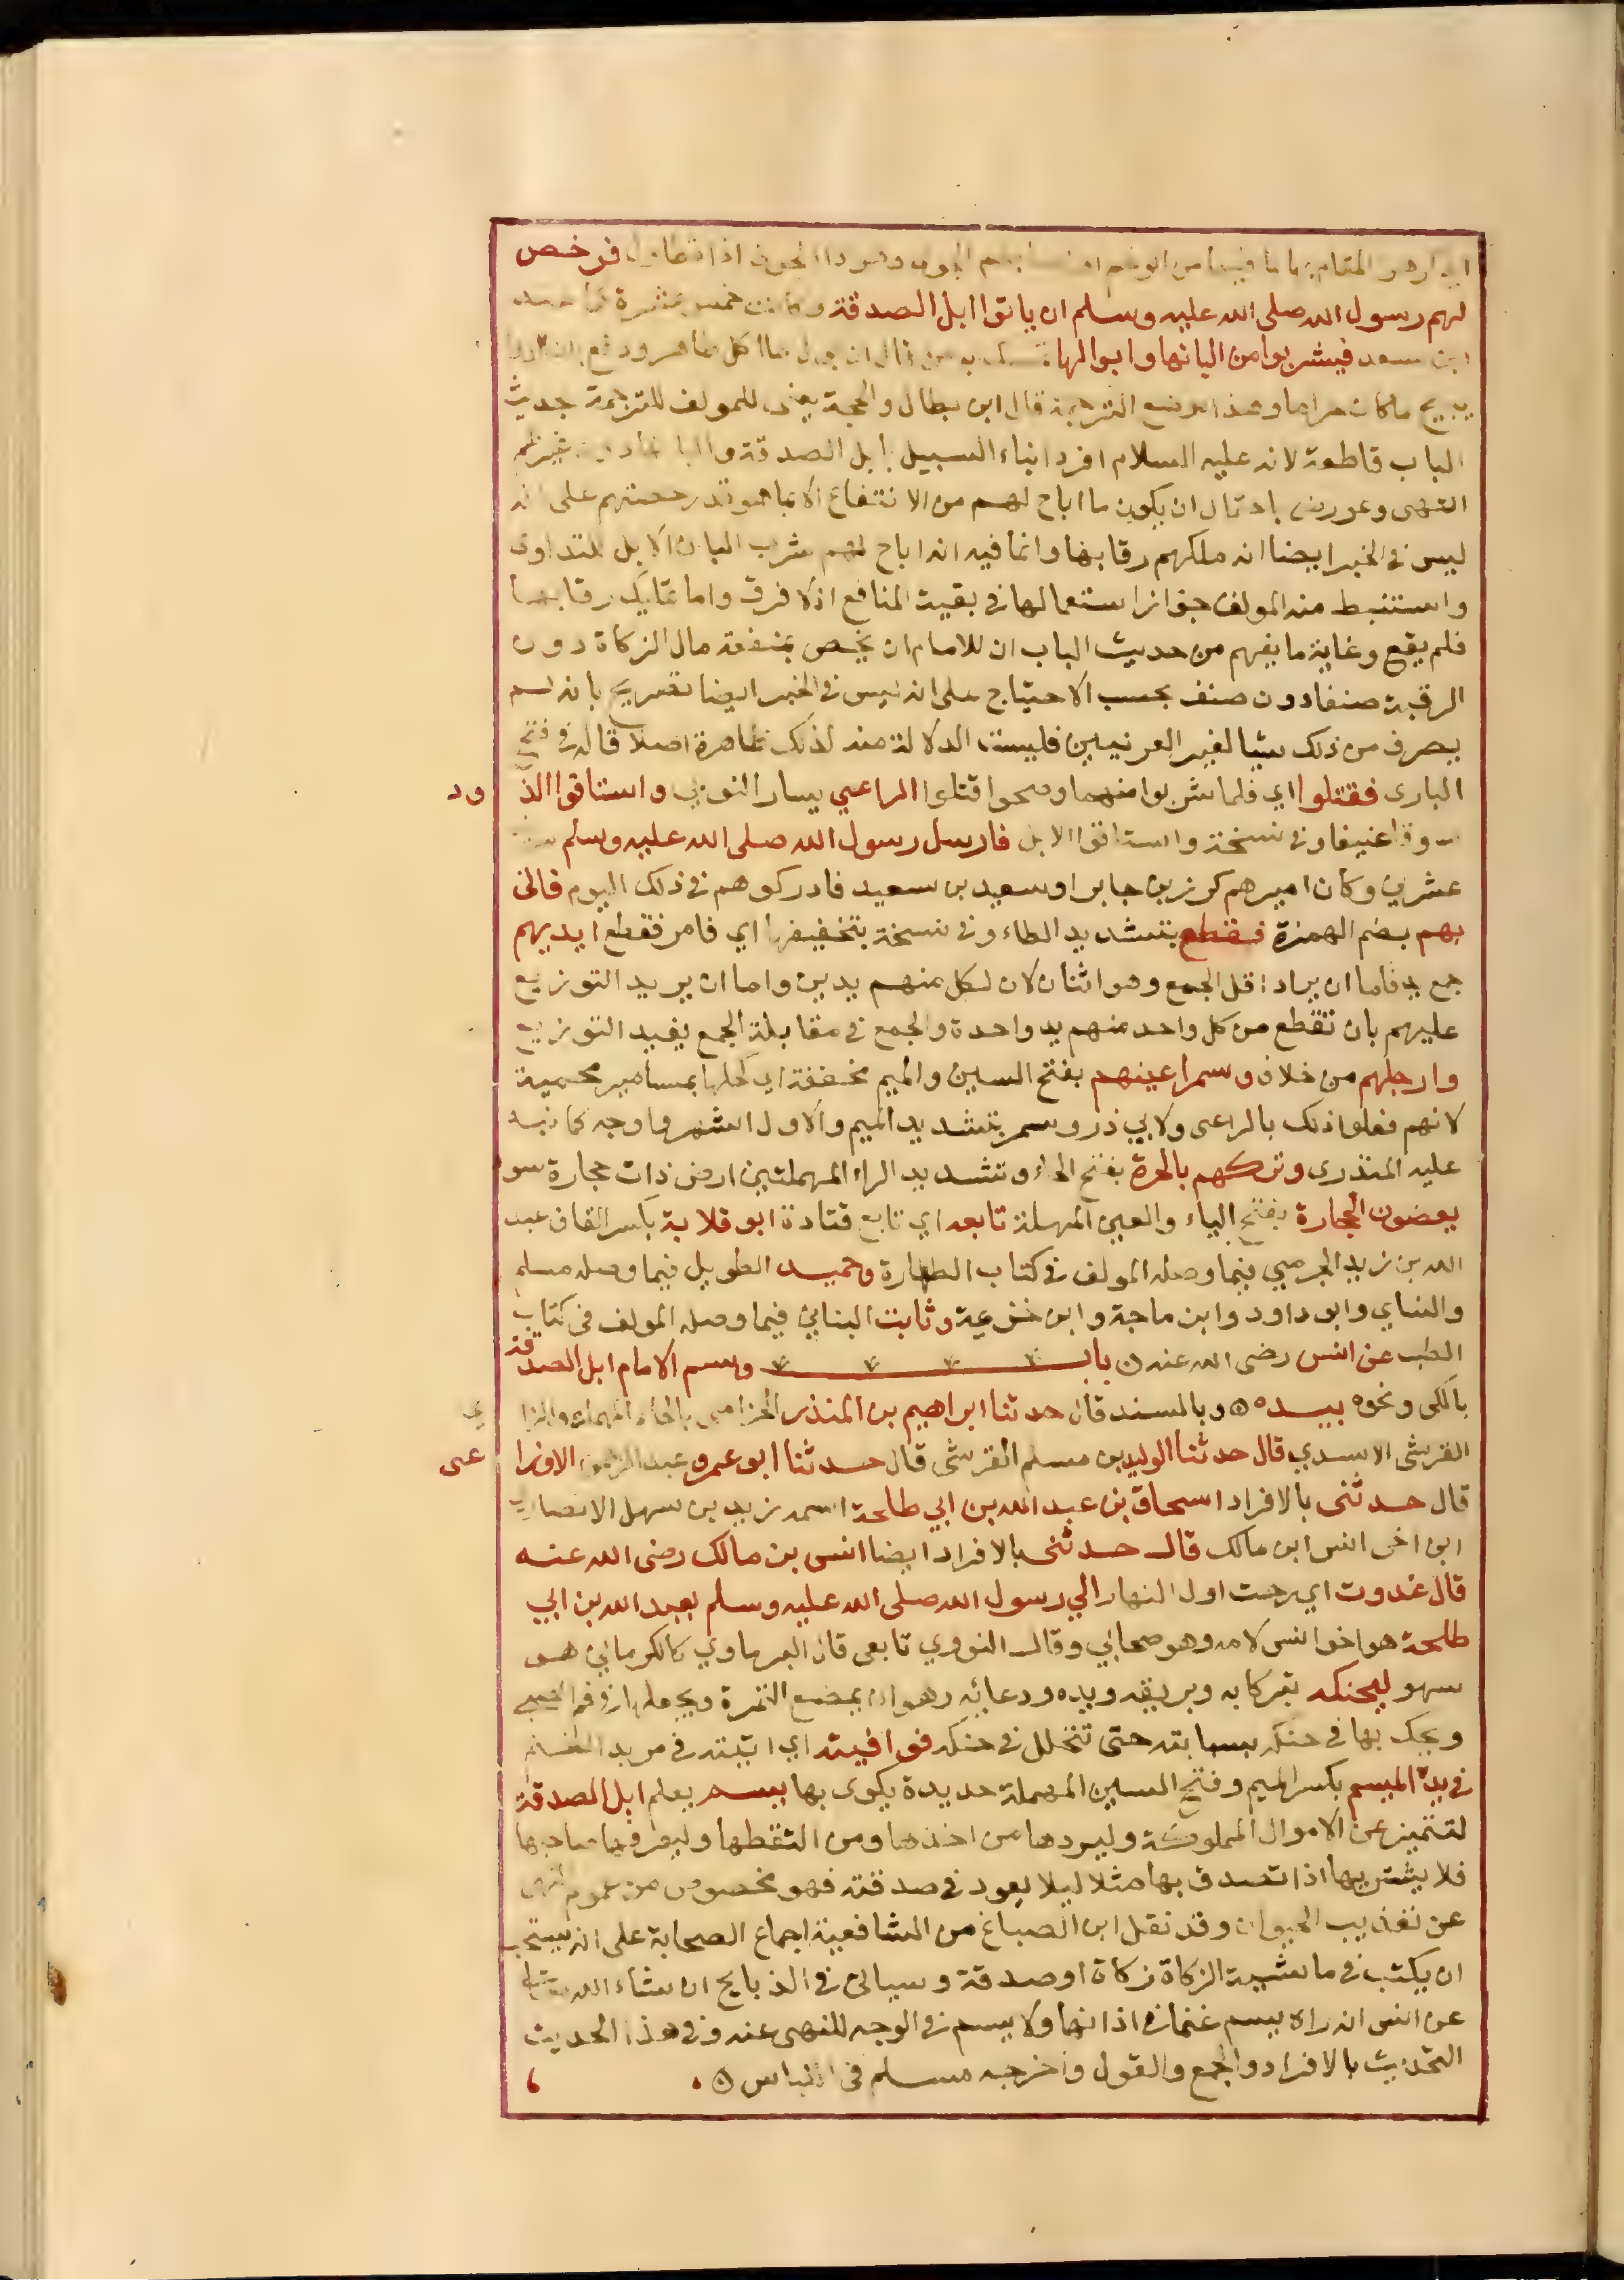 المقام بها لما فيها من الوخم او داء الجوف اذا تطاول فرخص
لهم رسول الله صلى الله عليه وسلم ان ياتوا ابل الصدقة وكانت خمس عشرة كما عند
ابن سعد فيشربوا من البانها وابوالها تمسك به من قال ان بول ما اكل طاهر ودفع بان الدوا
يبيح ما كان حراما وهذا موضع الترجمة قال ابن بطال والحجة يعني للمولف للترجمة حديث
الباب قاطعة لانه عليه السلام افرد ابناء السبيل بابل الصدقة والبانها دون غيرهم
انتهى وعورض باحتمال ان يكون ما اباح لهم من الانتفاع الا بما هو قدر حصتهم على انه
ليس في الخبر ايضا انه ملكهم رقابها وانما فيه انه اباح لهم شرب البان الابل للتداوى
واستنبط منه المولف جواز استعمالها في بقية المنافع اذ لا فرق واما تمليك رقابها
فلم يقع وغاية ما يفهم من حديث الباب ان للامام ان يخص بمنفعة مال الزكاة دون
الرقبة صنفا دون صنف بحسب الاحتياج على انه ليس في الخبر ايضا تصريح بانه لم
يصرف من ذلك شيا لغير العرنيين فليست الدلالة منه لذلك ظاهرة اصلا قاله في فتح
البارى فقتلوا اي فلما شربوا منهما وصحوا قتلوا الراعي يسار النوبي واستاقوا الذ ود
سوقا عنيفا وفي نسخة واستاقوا الابل فارسل رسول الله صلى الله عليه وسلم
عشرين وكان اميرهم كرز بن جابر او سعيد بن سعيد فادركوهم في ذلك اليوم فاتى
بهم بضم الهمزة فقطع بتشديد الطاء وفي نسخة بتخفيفها اي فامر فقطع ايديهم
جمع يد فاما ان يراد اقل الجمع وهو اثنان لان لكل منهم يدين واما ان يريد التوزيع
عليهم بان تقطع من كل واحد منهم يد واحدة والجمع في مقابلة الجمع يفيد التوزيع
وارجلهم من خلاف وسمر اعينهم بفتح السين والميم مخففة اي كحلها بمسامير محمية
لانهم فعلوا ذلك بالراعى ولابي ذر وسمر بتشديد الميم والاول اشهر واوجه كما نبه
عليه المنذرى وتركهم بالحرة بفتح الحاء وتشديد الراء المهملتين ارض ذات حجارة سو
يعضون الحجارة بفتح الياء والعين المهملة تابعه اي تابع قتادة ابو قلابة بكسر القاف عبد
الله بن زيد الجرمي فيما وصله المولف في كتاب الطهارة وحميد الطويل فيما وصله مسلم
والنساي وابو داود وابن ماجة وابن خزيمة وثابت البناني فيما وصله المولف في كتاب
الطب عن انس رضى الله عنه ن باب وسم الامام ابل الصدقة
بالكى ونحوه بيده ه وبالسند قال حدثنا ابراهيم بن المنذر الحزامى بالحاء المهملة والزا ي
القرشى الاسدي قال حدثنا الوليد بن مسلم القرشى قال حدثنا ابو عمرو عبد الرحمن الاوزا عى
قال حدثنى بالافراد اسحاق بن عبد الله بن ابي طلحة اسمه زيد بن سهل الانصاري
ابن اخى انس ابن مالك قال حدثنى بالافراد ايضا انس بن مالك رضى الله عنه
قال غدوت اي رحت اول النهار الي رسول الله صلى الله عليه وسلم بعبد الله بن ابي
طلحة هو اخو انس لامه وهو صحابي وقال النووي تابعى قال البرماوي كالكرماني هو
سهو ليحنكه تبركا به وبريقه ويده ودعائه وهو ان يمضع التمرة ويجعلها في فم الصبي
ويحك بها في حنكه بسبابته حتى تتحلل في حنكه فوافيته اي اتيته في مربد الغنم
في يده الميسم بكسر الميم وفتح السين المهملة حديدة يكوى بها يسم يعلم ابل الصدقة
لتتميز عن الاموال المملوكة وليردها من اخذها ومن التقطها وليعرفها صاحبها
فلا يشتريها اذا تصدق بها مثلا ليلا يعود في صدقته فهو مخصوص من عموم النهى
عن تعذيب الحيوان وقد نقل ابن الصباغ من الشافعية اجماع الصحابة على انه يستحب
ان يكتب في ماشية الزكاة زكاة او صدقة وسياتى في الذبايح ان شاء الله تعالى
عن انس انه راه يسم غنما في اذانها ولا يسم في الوجه للنهى عنه وفي هذا الحديث
التحديث بالافراد والجمع والقول واخرجه مسلم في اللباس ه